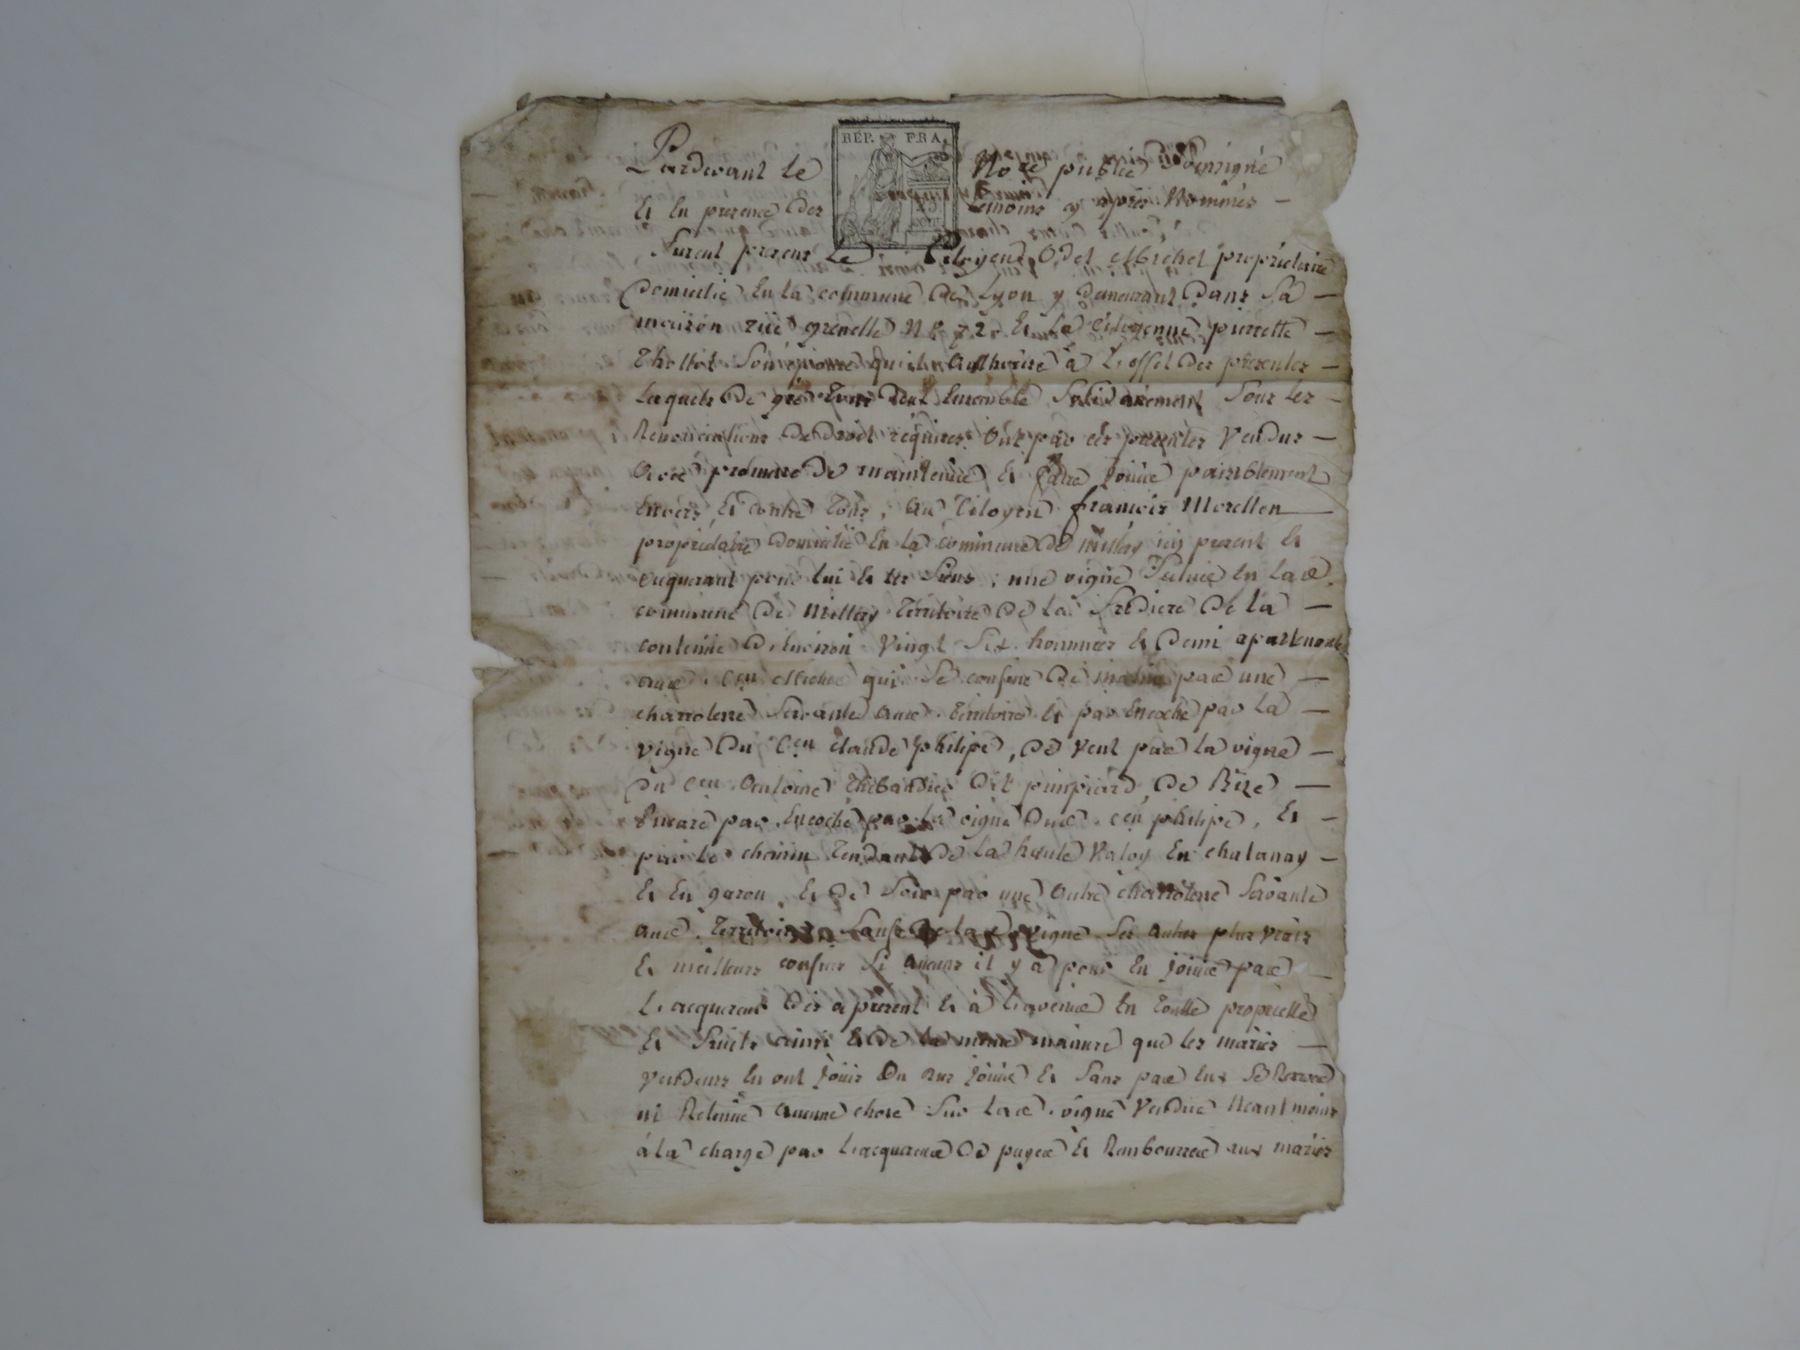 RÉP. FRA.
Pardevant le No.re public Soussigné
Et En presence des temoins cy après Nommés
furent presens le Citoyend Odet Michel propriétaire
domicilié En la commune de Lyon y demeurant dans Sa
maison rüe grenelle N.o 72. Et la Citoyenne pierrette
Thollot Son quil authorise à L'effet des presentes
Laquels de gré Ensemble Solidairement Sous les
Renonciations de droit requises Ont par ces presentes Vendus
avec promesse de maintenüe Et faire Joüir paisiblement
Envers Et contre Tous, au Citoyen francois Morellon
propriétaire domicilié En la commune de millery icy present Et
acquerant pour lui Et les Siens, une vigne Scituée En lad.
commune de Millery Territoire de La de la
contenüe d'Environ Vingt Six hommées Et demi apartenant
aud. C.en Michel qui Se confine de matin par une
charroterie Servante aud. Territoire Et par Encoche par la
vigne du C.en claude philipe, de Vent par la vigne
du C.en Antoine Thibaudier dit de Bize
Encore par Encoche par la vigne dud. C.en philipe, Et
par le chemin Tendant de la haute Valoy En chalanay
Et En garon, Et de Soir par une Autre charroterie Servante
aud. Territoire Sauf de lad. vigne Ses autres plus vrais
Et meilleurs confins Si aucuns il y a pour En Joüir par
L'acquereur dès a présent Et à L'avenir En Toutte proprietté
Et fruits ainsi Et de la même maniere que les mariés
Vendeurs En ont Joüis ou dus Joüir Et Sans par Eux Se Reserve
ni Retenüe aucune chose Sur lad. vigne Vendue Neantmoins
à la charge par L'acquereur de payer Et Rembourser aux mariés